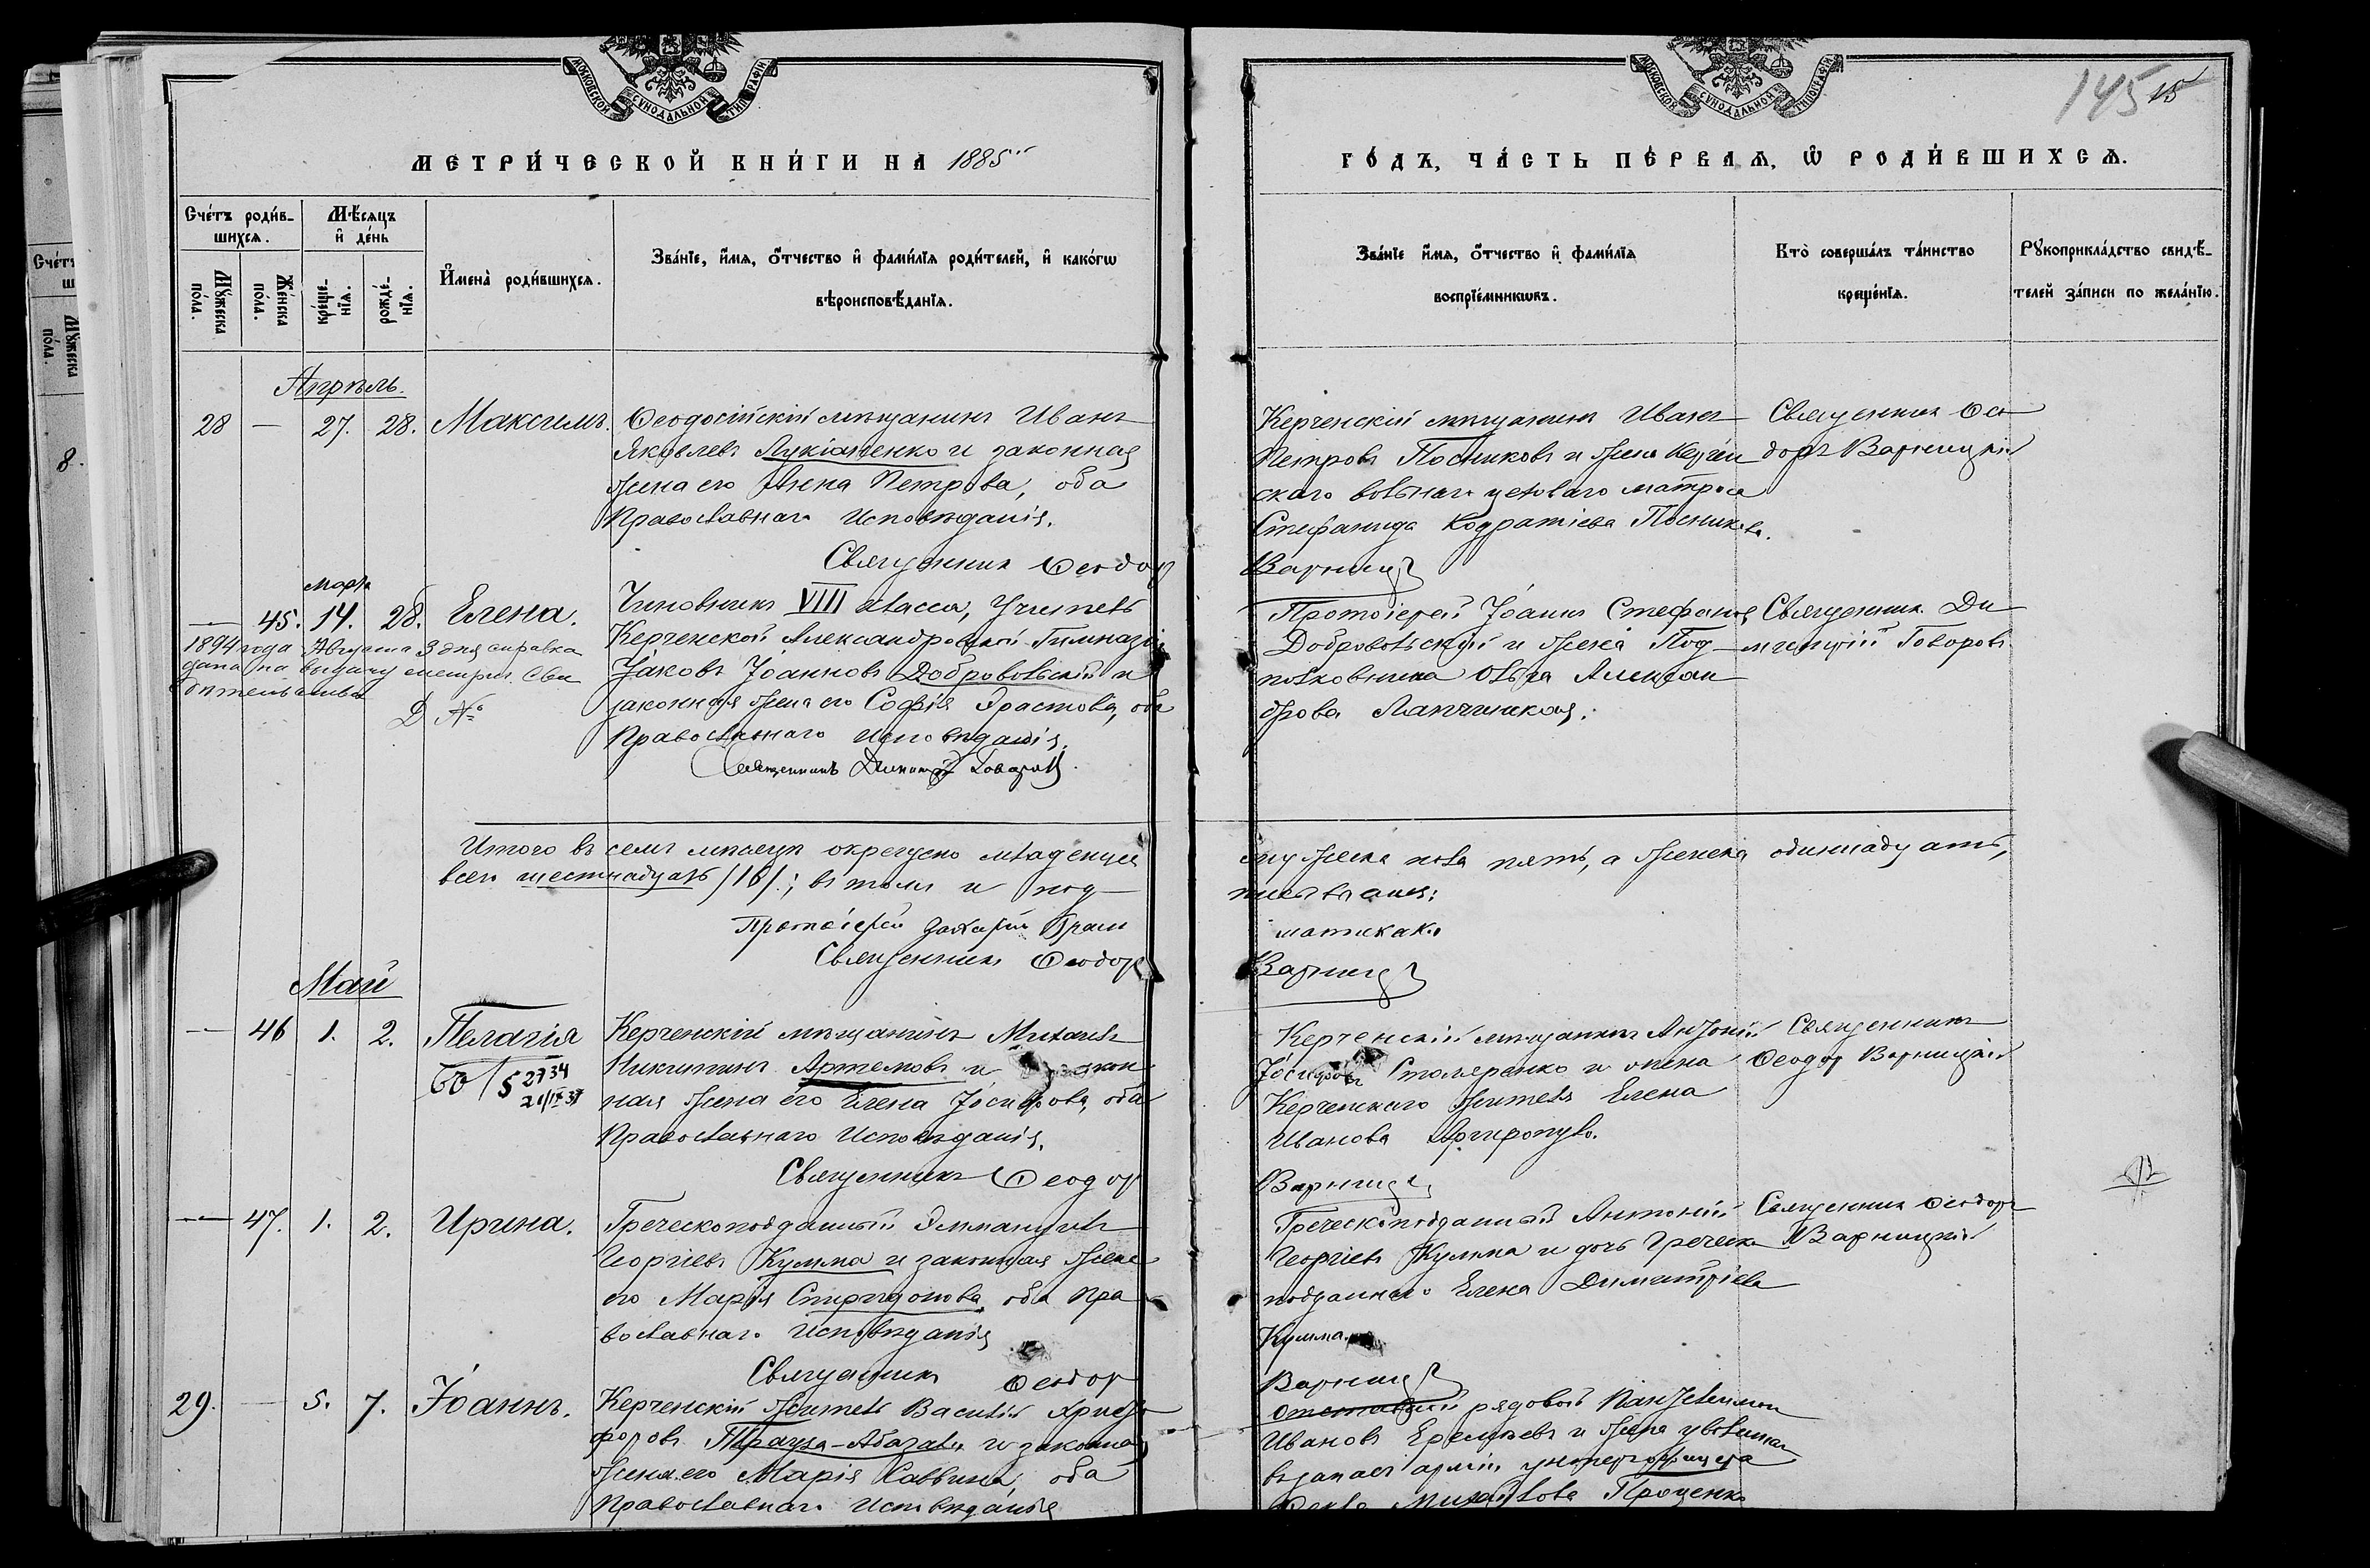 МОСКОВСКОЙ СУНОДАЛЬНОЙ ТИПОГРАФІИ
МЕТРИ́ЧЕСКОЙ КНИ́ГИ НА 1885
Сче́тъ роди́в-
шихсѧ.
Мѣ́сѧцъ
и҆ де́нь
Мꙋ́жеска
по́ла.
Же́нска
по́ла.
креще-
нїѧ.
рожде́-
нїѧ.
И҆мена̀ роди́вшихсѧ.
Зва́нїе, и҆́мѧ, ѻ҆́тчество и҆ фами́лїѧ роди́телей, и҆ како́гѡ
вѣроисповѣ́данїѧ.
Апрѣль.
28 — 27. 28. Максимъ.
Ѳеодосійскій мѣщанинъ Иванъ
Яковлевъ Лукіаненко и законная
жена его Анна Петрова, оба
Православнаго Исповѣданія.
Священникъ Ѳеодор
Марта
— 45. 14. 28. Елена.
1894 года Августа 3 дня справка
дана на выдачу метрич. Сви
дѣтельства
Д №
Чиновникъ VIII класса, Учитель
Керченской Александровской Гимназіи
Іаковъ Іоанновъ Добровольскій и
законная жена его Софія Эрастова, оба
Православнаго Исповѣданія.
Священникъ Димитрій Говоровъ
Итого въ семъ мѣсяцѣ окрещено младенцевъ
всего шестнадцать /16/.; въ томъ и под-
Протоіерей Захарій Грам
Священникъ Ѳеодор
Май
— 46 1. 2. Пелагія
2734
Керченскій мѣщанинъ Михаилъ
Никитинъ Артемовъ и закон
ная жена его Елена Іосифова, оба
Православнаго Исповѣданія.
Священникъ Ѳеодор
— 47. 1. 2. Ирина.
Греческоподданный Эммануилъ
Георгіевъ Кумма и законная жена
его Марія Спиридонова оба Пра
вославнаго Исповѣданія
Священникъ Ѳеодор
29. — 5. 7. Іоаннъ.
Керченскій житель Василій Христо
форовъ и законная
жена его Марія Саввина, оба
Православнаго Исповѣданія
МОСКОВСКОЙ СУНОДАЛЬНОЙ ТИПОГРАФІИ
145 15
ГО́ДЪ, ЧА́СТЬ ПЕ́РВАѦ, Ѡ҆ РОДИ́ВШИХСѦ.
Зва́нїе и҆́мѧ, ѻ҆́тчество и҆ фами́лїѧ
воспрїе́мникѡвъ.
Кто̀ соверша́лъ та́инство
креще́нїѧ.
Рꙋкоприкла́дство свидѣ́-
телей за́писи по жела́нїю.
Керченскій мѣщанинъ Иванъ
Петровъ Посниковъ и жена Керчен
скаго вольнаго цеховаго матроса
Стефанида Кодратіева Посникова.
Варниц
Священникъ Ѳео
доръ Варницкій
Протоіерей Іоаннъ Стефановъ
Добровольскій и жена Под-
полковника Ольга Алексан
дрова Лапчинская.
Священникъ Ди
митрій Говоровъ
мужеска пола пять, а женска одиннадцать,
писываемся:
матикаки
Варниц
Керченскій мѣщанинъ Антоній
Іосифовъ Столяренко и жена
Керченскаго жителя Елена
Иванова Аргиропуло.
Варниц
Священникъ
Ѳеодор Варницкій
Греческоподданный Антоній
Георгіевъ Кумма и дочь Греческо
подданнаго Елена Димитріева
Кумма.
Варниц
Священникъ Ѳеодоръ
Варницкій
Отставной рядовой Пантелеимон
Ивановъ Еремѣевъ и жена уволенна
въ запасъ арміи унтеръ-офицера
Михайлова Проценко
8.